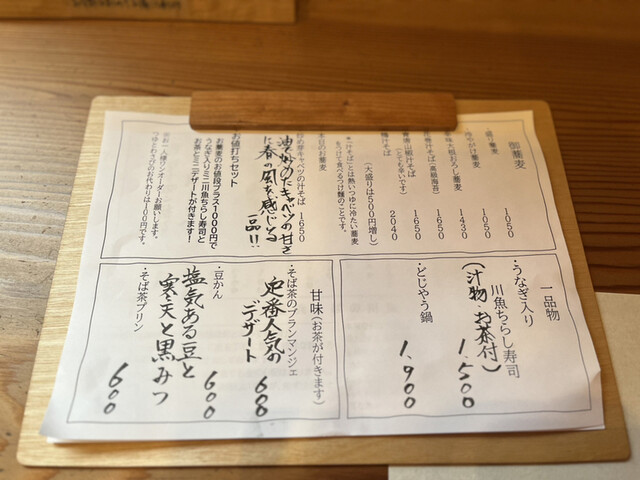 御蕎麦
盛り蕎麦 1050
冷やかけ蕎麦 1050
辛味大根おろし蕎麦 1430
花巻汁そば（高級海苔） 1650
青唐山椒汁そば（とても辛いです） 1650
鴨汁そば 2040
（大盛りは500円増し）
*汁そばとは熱いつゆに冷たい蕎麦
をつけて食べるつけ麺のことです。
本日のお蕎麦
キャベツの汁そば 1650
油でかのたキャベツの甘さ
に春の風を感じる
一品!!
お値打ちセット
お蕎麦のお値段プラス1000円で
うなぎ入りミニ川魚ちらし寿司と
お茶とミニデザートが付きます！
※お一人様ワンオーダーお願いします。
つゆとわさびのお代わりは100円です。
一品物
・うなぎ入り
川魚ちらし寿司
（汁物・お茶付） 1,500
・どじょう鍋 1,900
甘味（お茶が付きます）
・そば茶のブランマンジェ
定番人気の
デザート 600
・豆かん
塩気ある豆と 600
寒天と黒みつ
・そば茶プリン 600